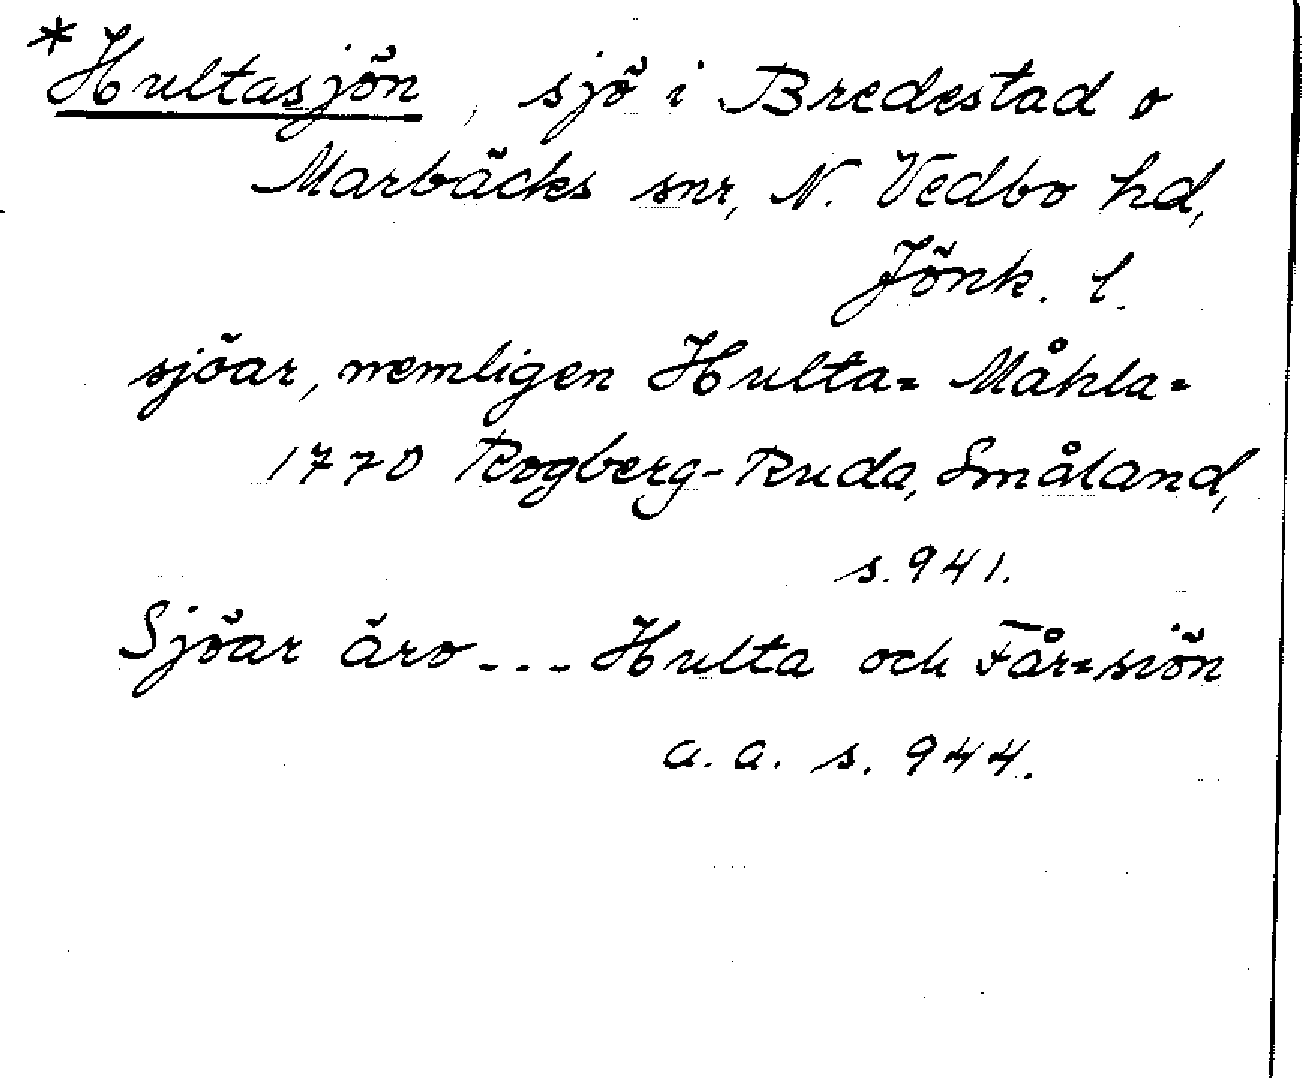 *Hultasjön, sjö i Bredestad o
Marbäcks snr, N. Vedbo hd,
Jönk. l.
sjöar, nemligen Hulta= Måhla=
1770 Rogberg-Ruda, Småland,
s. 941.
Sjöar äro --- Hulta och Får=siön
a. a. s. 944.